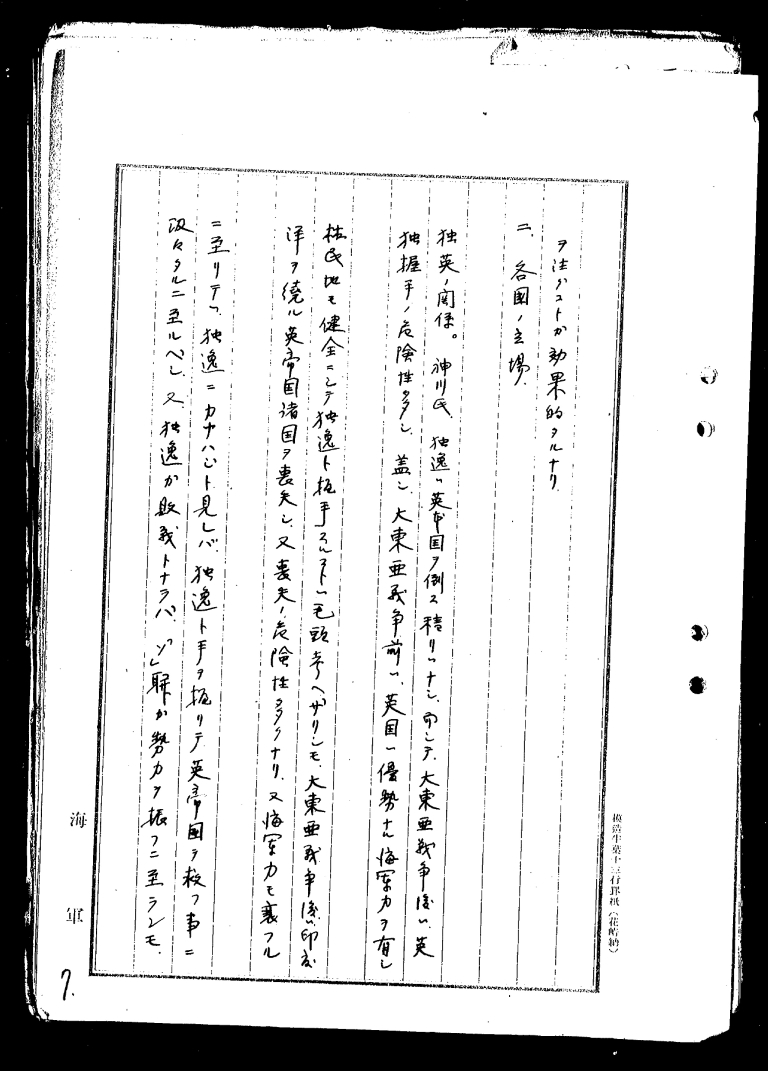 ヲ注グコトガ効果的タルナリ
二、各国ノ立場、
独英ノ関係。神川氏、独逸ハ英本国ヲ倒ス積リハナシ、而シテ、大東亜戦争後ハ、英
独握手ノ危険性多シ、蓋シ、大東亜戦争前ハ、英国ハ優勢ナル海軍力ヲ有シ
植民地モ健全ニシテ独逸ト握手スルコトハ毛頭考ヘザリシモ、大東亜戦争後ハ印度
洋ヲ繞ル英帝国諸国ヲ喪失シ、又喪失ノ危険性多クナリ、又海軍力モ衰フル
ニ至リテハ、独逸ニカナハント見レバ、独逸ト手ヲ握リテ英帝国ヲ救フ事ニ
汲々タルニ至ルベシ、又独逸ガ敗戦トナラバ、「ソ」聯ガ勢力ヲ振フニ至ランモ、
海軍
7.